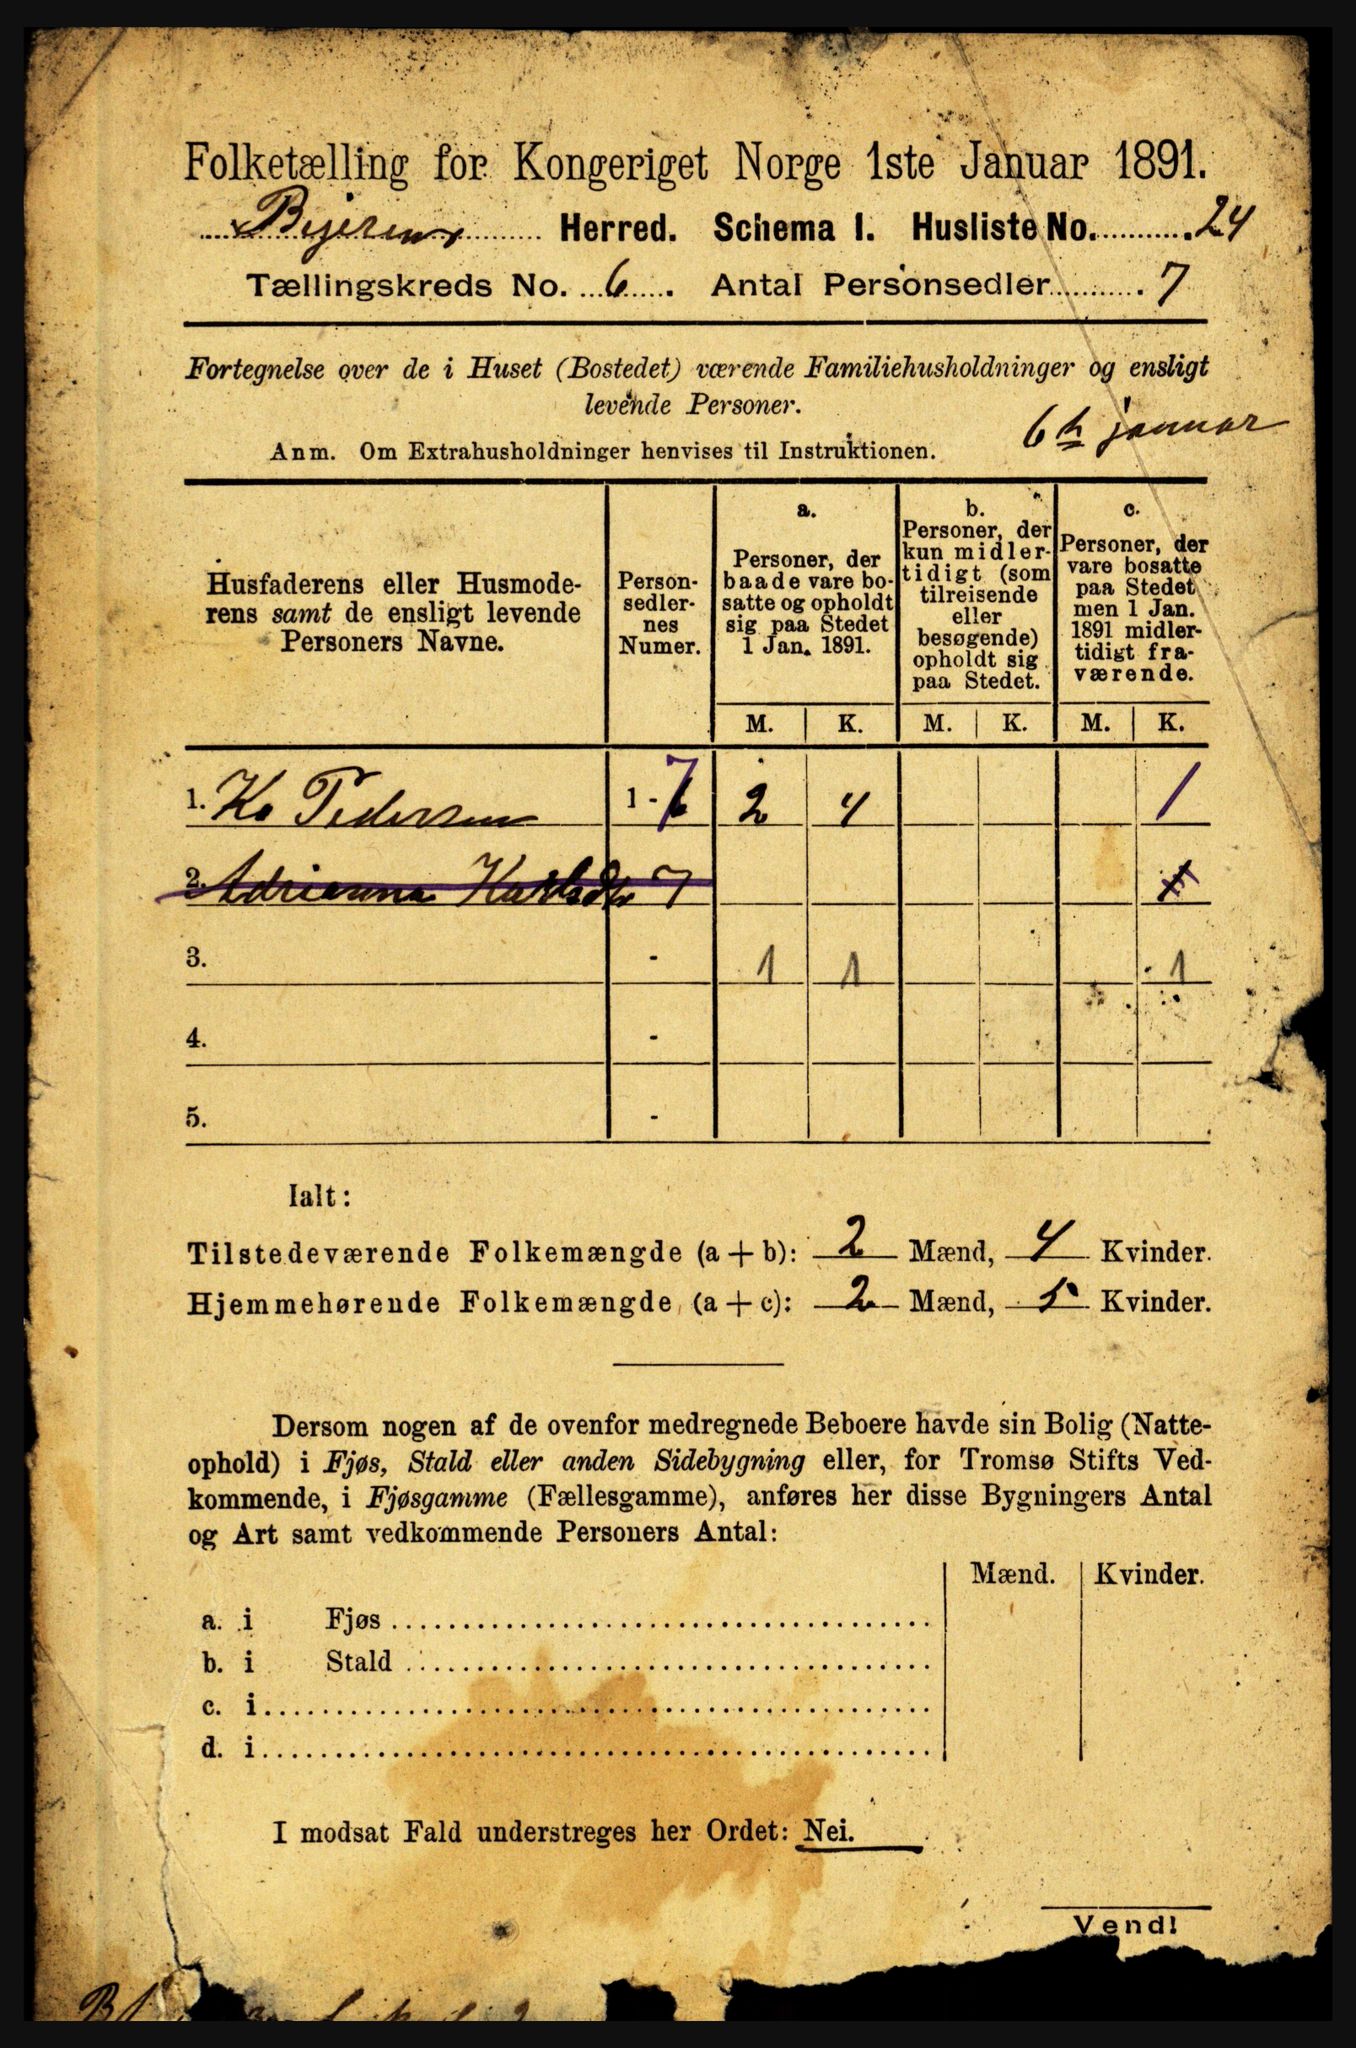 Folketælling for Kongeriget Norge 1ste Januar 1891.
Bejeren Herred. Schema I. Husliste No. 24
Tællingskreds No. 6. Antal Personsedler 7
Fortegnelse over de i Huset (Bostedet) værende Familiehusholdninger og ensligt
levende Personer.
6h januar
Anm. Om Extrahusholdninger henvises til Instruktionen.
Husfaderens eller Husmoderens samt de ensligt levende Personers Navne.
Personsedlernes Numer.
a. Personer, der baade vare bosatte og opholdt sig paa Stedet 1 Jan. 1891.
b. Personer, der kun midlertidigt (som tilreisende eller besøgende) opholdt sig paa Stedet.
c. Personer, der vare bosatte paa Stedet men 1 Jan. 1891 midlertidigt fraværende.
M. K. M. K. M. K.
1. Ko Pedersen 1 - 7 2 4 1
2. Adrianna Karlsdtr 7 1
3. - 1 1 1
4. -
5. -
Ialt:
Tilstedeværende Folkemængde (a + b): 2 Mænd, 4 Kvinder.
Hjemmehørende Folkemængde (a + c): 2 Mænd, 5 Kvinder.
Dersom nogen af de ovenfor medregnede Beboere havde sin Bolig (Natte-
ophold) i Fjøs, Stald eller anden Sidebygning eller, for Tromsø Stifts Ved-
kommende, i Fjøsgamme (Fællesgamme), anføres her disse Bygningers Antal
og Art samt vedkommende Personers Antal:
Mænd. Kvinder.
a. i Fjøs
b. i Stald
c. i
d. i
I modsat Fald understreges her Ordet: Nei.
Vend!